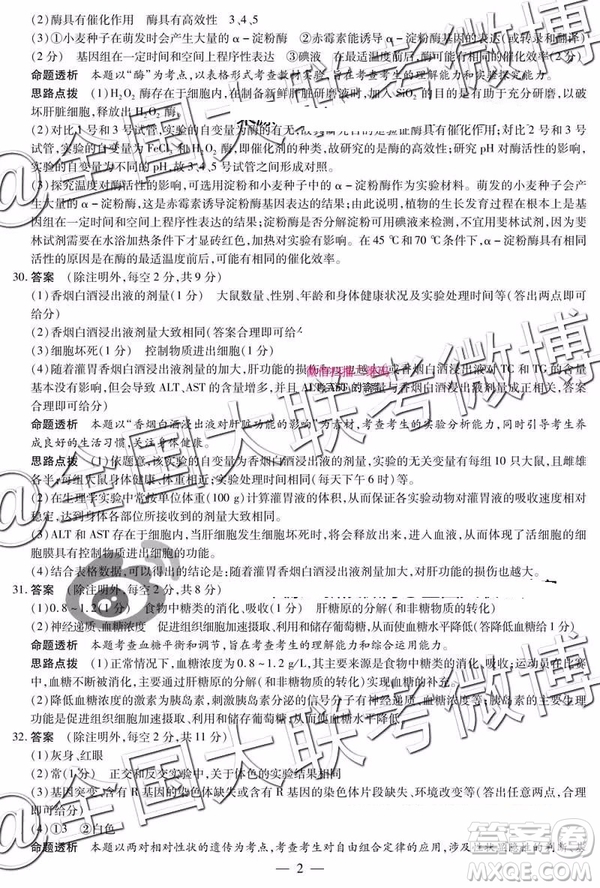 (2)酶具有催化作用　酶具有高效性　3、4、5
(3)①小麦种子在萌发时会产生大量的 α－淀粉酶　②赤霉素能诱导 α－淀粉酶基因的表达
(2分)　基因组在一定时间和空间上程序性表达　③碘液　在最适温度前后有相同的催化效率(2分)
命题透析　本题以“酶”为考点,以表格形式考查教材实验,旨在考查考生的理解能力与实验探究能力。
思路点拨　(1)H₂O₂ 酶存在于细胞内,在制备新鲜肝脏研磨液时,加入 SiO₂ 的目的是有助于充分研磨,以破
坏肝脏细胞,释放出 H₂O₂ 酶。
(2)对比 1 号和 3 号试管,实验的自变量为酶的有无,故其研究目的是验证酶具有催化作用。2 号和 3 号
试管的自变量为 FeCl₃ 和 H₂O₂ 酶,即催化剂的种类,故研究的是酶的高效性;研究 pH 对酶活性的影响,
其实验的自变量为不同的 pH,故 3、4、5 试管之间形成对照。
(3)探究温度对酶活性的影响,可选用淀粉和小麦种子中的 α－淀粉酶作为实验材料。萌发的小麦种子会产
生大量的 α－淀粉酶,这是赤霉素诱导 α－淀粉酶基因表达的结果,当然,植物的生长发育过程在根本上是基
因组在一定时间和空间上程序性表达的结果;淀粉酶是否分解淀粉可用碘液来检测,不能用斐林试剂,因为斐
林试剂需要在水浴加热条件下使用,加热会影响实验结果。在 45 ℃和 70 ℃下,α－淀粉酶具有相同
活性的原因是在酶的最适温度前后,可能有相同的催化效率。
30. 答案　(除注明外,每空 2 分,共 9 分)
(1)香烟白酒浸出液的剂量(1 分)　大鼠数量、性别、年龄和身体健康状况及实验处理时间等(答出两点即可
给分)
(2)香烟白酒浸出液剂量大致相同(答案合理即可给分)
(3)细胞坏死(1 分)　控制物质进出细胞
(4)随着灌胃香烟白酒浸出液剂量的增加,对肝功能的损伤也越大(或香烟白酒浸出液对 TC 和 TG 的含量
基本没有影响,但是会导致 ALT、AST 的含量增多,并且 ALT、AST 的含量与香烟白酒浸出液剂量成正相关,答案
合理即可给分)
命题透析　本题以“香烟白酒浸出液对肝脏功能的影响”为切入点,考查考生的实验分析能力,同时引导考生养
成良好的生活习惯,关注身体健康。
思路点拨　(1)依题意,该实验的自变量为香烟白酒浸出液的剂量,实验的无关变量有每组 10 只大鼠,且雌雄
各一半,每组大鼠的年龄和身体健康状况大致相同,还包括实验处理时间等(每天下午 6 时)
(2)在生理学实验中常按单位体重(100 g)计算灌胃液的剂量,从而保证各实验动物体内灌胃液的浓度大致
稳定,达到身体各部位所接收到的刺激量大致相同。
(3)ALT 和 AST 存在于细胞内,当肝细胞发生细胞坏死时,将会释放出来,进入血液,从而体现了活细胞的细
胞膜具有控制物质进出细胞的功能。
(4)结合表格数据,可以得出的结论是:随着灌胃香烟白酒浸出液剂量的增大,对肝功能的损伤也越大。
31. 答案　(除注明外,每空 2 分,共 8 分)
(1)0.8~1.2(1 分)　食物中糖类的消化、吸收(1 分)　肝糖原的分解(和非糖物质的转化)
(2)神经递质、血糖浓度　促进组织细胞加速摄取、利用和储存葡萄糖,从而使血糖水平降低
命题透析　本题考查血糖平衡和调节,旨在考查考生的理解能力和综合运用能力。
思路点拨　(1)正常情况下,人血糖浓度为 0.8 ~ 1.2 g/L,其主要来源是食物中糖类的消化、吸收
(2)降低血糖浓度的激素为胰岛素,刺激胰岛素分泌的信号分子有神经递质、血糖浓度等;胰岛素的作用是
促进组织细胞加速摄取、利用和储存葡萄糖,从而使血糖水平降低
32. 答案　(除注明外,每空 2 分,共 11 分)
(1)灰身、红眼
(2)常(1 分)　正交和反交实验中,关于体色的实验结果相同
(3)基因突变,含有 R 基因的染色体缺失或含有 R 基因的染色体片段缺失、环境改变等(答出两点即可给分)
(4)①3　②白色
命题透析　本题以两对相对性状的遗传为考点,考查考生对自由组合定律的应用,涉及性状显隐性的判断、
— 2 —
@全国大联考微博
@全国大联考微博
@全国大联考微博
答案圈
MXQE.COM